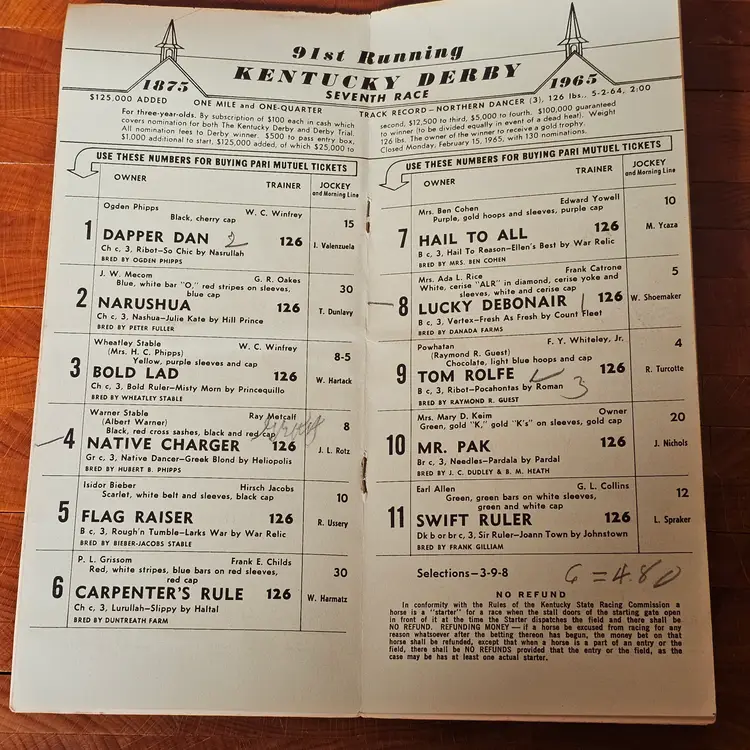 91st Running
KENTUCKY DERBY
SEVENTH RACE
1875
1965
$125,000 ADDED
ONE MILE and ONE-QUARTER
TRACK RECORD—NORTHERN DANCER (3), 126 lbs., 5-2-64, 2:00
For three-year-olds. By subscription of $100 each in cash which
covers nomination for both The Kentucky Derby and Derby Trial.
All nomination fees to Derby winner. $500 to pass entry box,
$1,000 additional to start, $125,000 added, of which $25,000 to
second, $12,500 to third, $5,000 to fourth. $100,000 guaranteed
to winner (to be divided equally in event of a dead heat). Weight
126 lbs. The owner of the winner to receive a gold trophy.
Closed Monday, February 15, 1965, with 130 nominations.
USE THESE NUMBERS FOR BUYING PARI MUTUEL TICKETS
OWNER TRAINER JOCKEY
and Morning Line
Ogden Phipps W. C. Winfrey
Black, cherry cap 15
1 DAPPER DAN 2 126
I. Valenzuela
Ch c, 3, Ribot—So Chic by Nasrullah
BRED BY OGDEN PHIPPS
J. W. Mecom G. R. Oakes
Blue, white bar "O," red stripes on sleeves,
blue cap 30
2 NARUSHUA 126
T. Dunlavy
Ch c, 3, Nashua—Julie Kate by Hill Prince
BRED BY PETER FULLER
Wheatley Stable W. C. Winfrey
(Mrs. H. C. Phipps)
Yellow, purple sleeves and cap 8-5
3 BOLD LAD 126
W. Hartack
Ch c, 3, Bold Ruler—Misty Morn by Princequillo
BRED BY WHEATLEY STABLE
Warner Stable Ray Metcalf
(Albert Warner)
Black, red cross sashes, black and red cap 8
4 NATIVE CHARGER 126
J. L. Rotz
Gr c, 3, Native Dancer—Greek Blond by Heliopolis
BRED BY HUBERT B. PHIPPS
Isidor Bieber Hirsch Jacobs
Scarlet, white belt and sleeves, black cap 10
5 FLAG RAISER 126
R. Ussery
B c, 3, Rough'n Tumble—Larks War by War Relic
BRED BY BIEBER-JACOBS STABLE
P. L. Grissom Frank E. Childs
Red, white stripes, blue bars on red sleeves,
red cap 30
6 CARPENTER'S RULE 126
W. Harmatz
Ch c, 3, Lurullah—Slippy by Haltal
BRED BY DUNTREATH FARM
USE THESE NUMBERS FOR BUYING PARI MUTUEL TICKETS
OWNER TRAINER JOCKEY
and Morning Line
Mrs. Ben Cohen Edward Yowell
Purple, gold hoops and sleeves, purple cap 10
7 HAIL TO ALL 126
M. Ycaza
B c, 3, Hail To Reason—Ellen's Best by War Relic
BRED BY MRS. BEN COHEN
Mrs. Ada L. Rice Frank Catrone
White, cerise "ALR" in diamond, cerise yoke and
sleeves, white and cerise cap 5
8 LUCKY DEBONAIR 1 126
W. Shoemaker
B c, 3, Vertex—Fresh As Fresh by Count Fleet
BRED BY DANADA FARMS
Powhatan F. Y. Whiteley, Jr.
(Raymond R. Guest)
Chocolate, light blue hoops and cap 4
9 TOM ROLFE 126
R. Turcotte
B c, 3, Ribot—Pocahontas by Roman 3
BRED BY RAYMOND R. GUEST
Mrs. Mary D. Keim Owner
Green, gold "K," gold "K's" on sleeves, gold cap 20
10 MR. PAK 126
J. Nichols
Br c, 3, Needles—Pardala by Pardal
BRED BY J. C. DUDLEY & B. M. HEATH
Earl Allen G. L. Collins
Green, green bars on white sleeves,
green and white cap 12
11 SWIFT RULER 126
L. Spraker
Dk b or br c, 3, Sir Ruler—Joann Town by Johnstown
BRED BY FRANK GILLIAM
Selections—3-9-8
6 = 4.80
NO REFUND
In conformity with the Rules of the Kentucky State Racing Commission a
horse is a "starter" for a race when the stall doors of the starting gate open
in front of it at the time the Starter dispatches the field and there shall be
NO REFUND. REFUNDING MONEY — if a horse be excused from racing for any
reason whatsoever after the betting thereon has begun, the money bet on that
horse shall be refunded, except that when a horse is a part of an entry or the
field, there shall be NO REFUNDS provided that the entry or the field, as the
case may be has at least one actual starter.